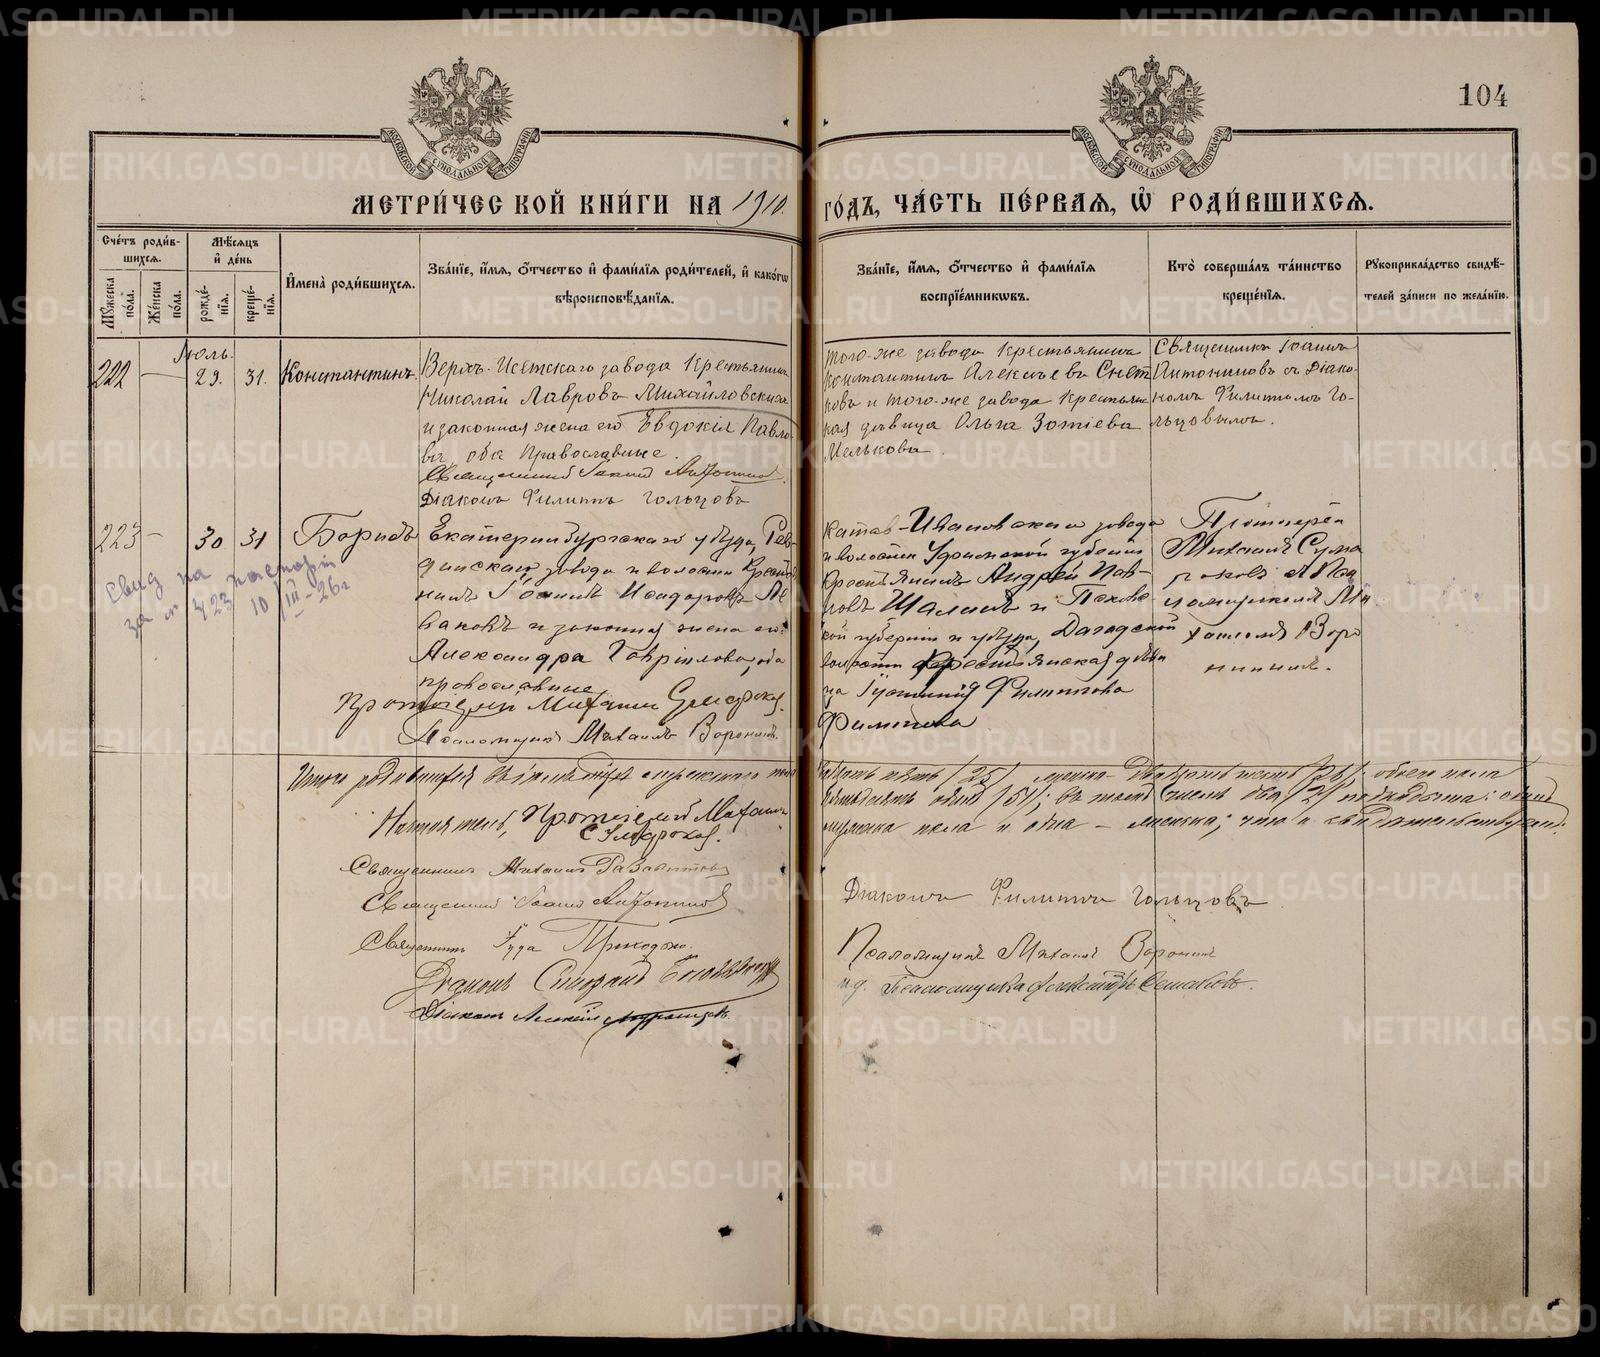 104
МОСКОВСКОЙ СѴНОДАЛЬНОЙ ТИПОГРАФІИ
МОСКОВСКОЙ СѴНОДАЛЬНОЙ ТИПОГРАФІИ
МЕТРИ́ЧЕСКОЙ КНИ́ГИ НА 1910 ГО́ДЪ, ЧА́СТЬ ПЕ́РВАЯ, Ѡ҆ РОДИ́ВШИХСѦ.
Сче́тъ роди́вшихсѧ.
Мꙋ́жеска по́ла.
Же́нска по́ла.
Мѣ́сѧцъ и҆ де́нь
рожде́нїѧ.
креще́нїѧ.
И҆мена̀ роди́вшихсѧ.
Зва́нїе, и҆́мѧ, ѻ҆́тчество и҆ фами́лїѧ роди́телей, и҆ како́гѡ
вѣроисповѣ́данїѧ.
Зва́нїе, и҆́мѧ, ѻ҆́тчество и҆ фами́лїѧ
воспрїе́мникѡвъ.
Кто̀ соверша́лъ та́инство
креще́нїѧ.
Рꙋкоприкла́дство свидѣ́-
телей за́писи по жела́нїю.
222
—
Іюль.
29.
31.
Константинъ.
Верхъ-Исетскаго завода крестьянинъ
Николай Лавровъ Михайловскихъ
и законная жена его Евдокія Павло-
ва, оба православные.
Священникъ Іоаннъ Антониновъ
Діаконъ Филиппъ Гольцовъ
того-же завода крестьянинъ
Константинъ Алексѣевъ Снѣт-
ковъ и того-же завода крестьянс-
кая дѣвица Ольга Зотіева
Мелькова.
Священникъ Іоаннъ
Антониновъ съ Діако-
номъ Филиппомъ Го-
льцовымъ.
223
—
30
31
Борисъ
Екатеринбургскаго уѣзда, Рев-
динскаго завода и волости крестья-
нинъ Іоаннъ Исидоровъ
и законная жена его
Александра Гавріилова, оба
православные
Протоіерей Михаилъ Сумароковъ.
Псаломщикъ Михаилъ Воронинъ.
Катав-Ивановскаго завода
и волости Уфимской губерніи
крестьянинъ Андрей Пав-
ловъ Шалинъ и Псковс-
кой губерніи и уѣзда,
волости крестьянская дѣви-
ца Филиппова
Филиппова
Протоіерей
Михаилъ Сума-
роковъ с Пса-
ломщикомъ Ми-
хаиломъ Воро-
нинымъ.
Свид на паспорт
за № 423 10/III-26г
Итого родившихся въ іюлѣ мѣсяцѣ мужскаго пола
двадцать пять /25/, женска - двадцать шесть /26/; обоего пола
пятьдесятъ одинъ /51/; въ томъ числѣ два /2/ подкидыша: одинъ
мужска пола и одна - женска; что и свидѣтельствуемъ:
Настоятель, Протоіерей Михаилъ
Сумароковъ.
Священникъ Михаилъ
Священникъ Іоаннъ Антониновъ
Священникъ Іуда Приходько.
Діаконъ
Діаконъ Алексій
Діаконъ Филиппъ Гольцовъ
Псаломщикъ Михаилъ Воронинъ
и.д. Псаломщика Александръ
METRIKI.GASO-URAL.RU